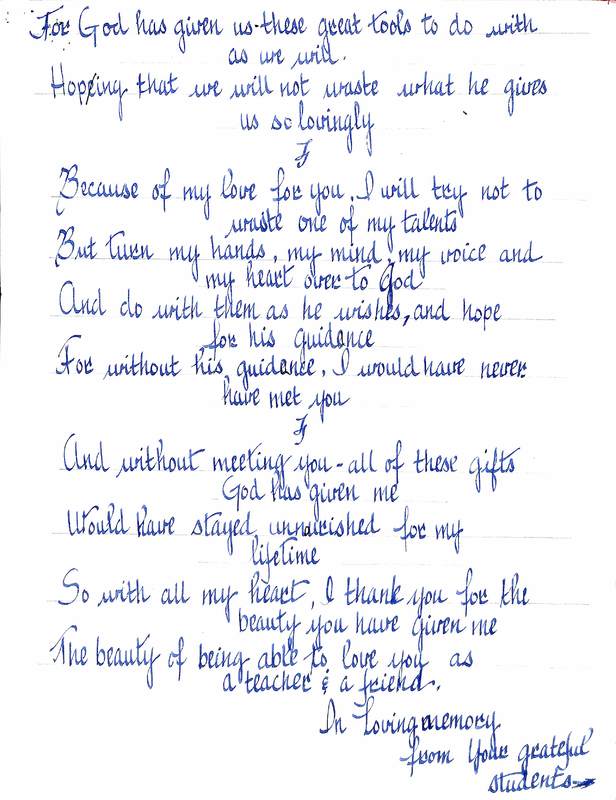 For God has given us-these great tools to do with
as we will.
Hopeing that we will not waste what he gives
us so lovingly
Because of my love for you, I will try not to
waste one of my talents
But turn my hands, my mind, my voice and
my heart over to God
And do with them as he wishes, and hope
for his guidance
For without his guidance, I would have never
have met you
And without meeting you - all of these gifts
God has given me
Would have stayed unnurished for my
lifetime
So with all my heart, I thank you for the
beauty you have given me
The beauty of being able to love you as
a teacher & a friend.
In Loving memory
from Your grateful
students